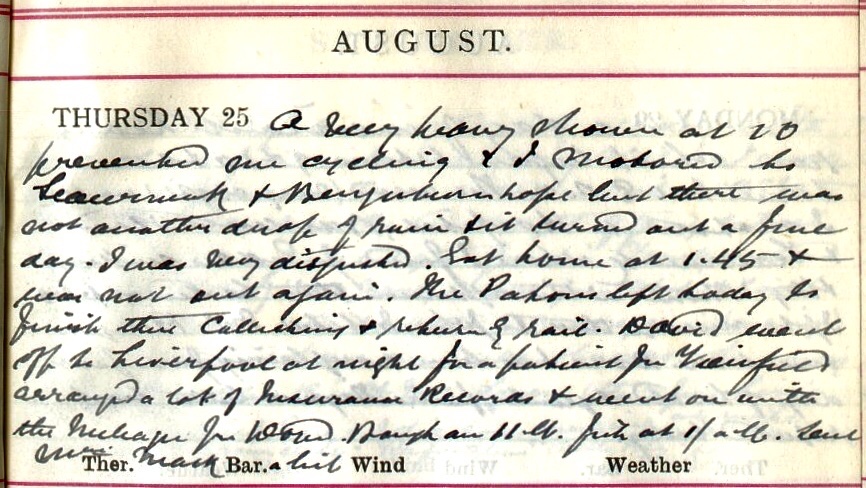 AUGUST.
THURSDAY 25 A very heavy shower at 10
prevented me cycling & I motored to
& hope but there was
not another drop of rain & it turned out a fine
day. I was very disgusted. Got home at 1.45 &
was not out again. The left today to
finish their & return by rail. David went
off to Liverpool at night for a patient for
arranged a lot of Insurance Records & went on with
the Mileage for David. an 11 lb. fish at 1/ a lb. Sent
Mrs Mack a bit
Ther. Bar. Wind Weather